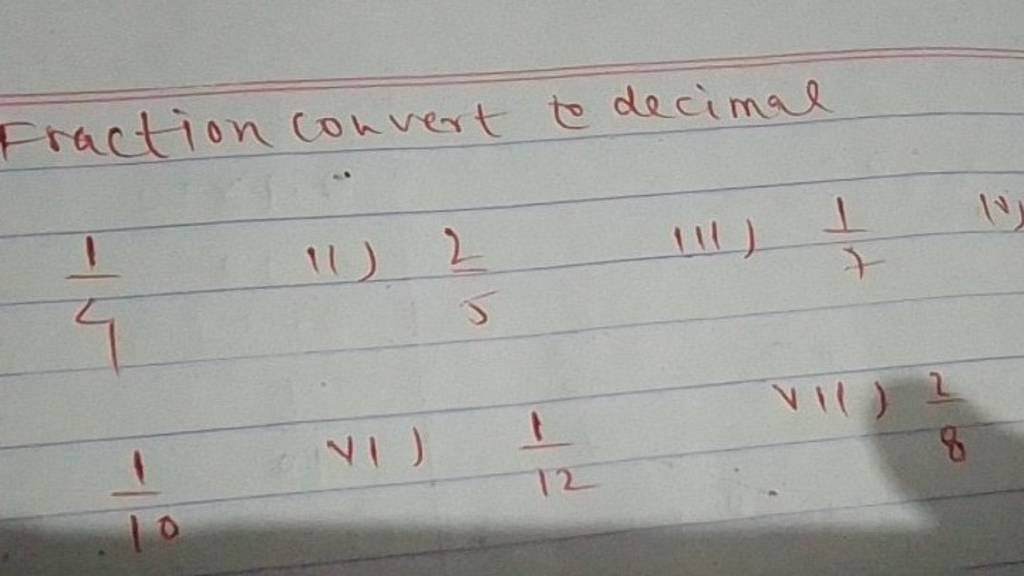 Fraction convert to decimal
1/4 ii) 2/5 iii) 1/7 iv)
1/10 vi) 1/12 vii) 2/8